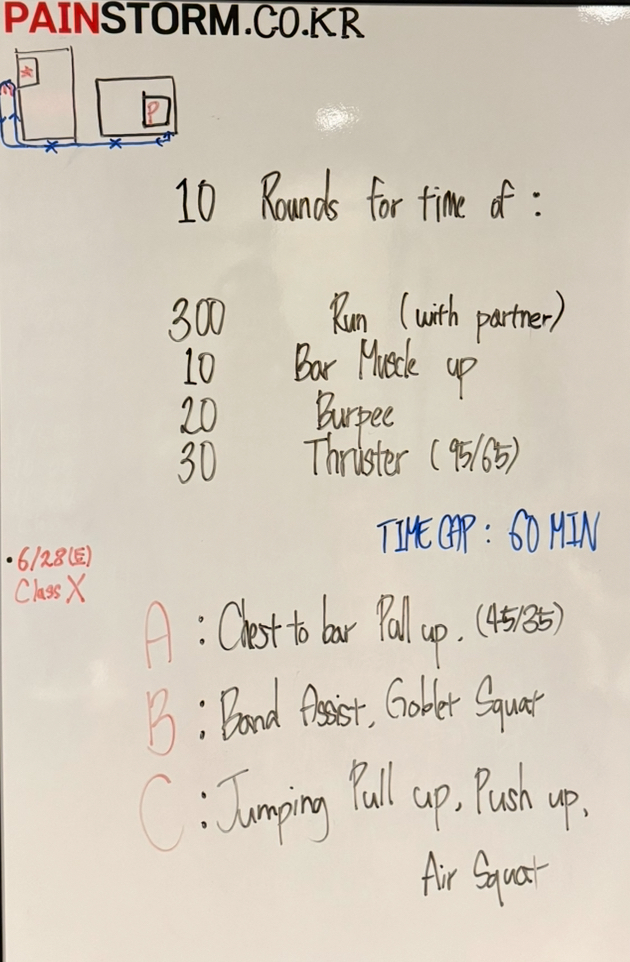 PAINSTORM.CO.KR
P
10 Rounds for time of :
300 Run (with partner)
10 Bar Muscle up
20 Burpee
30 Thruster (95/65)
TIME CAP : 60 MIN
• 6/28(토)
Class X
A : Chest to bar Pull up. (45/35)
B : Band Assist, Goblet Squat
C : Jumping Pull up, Push up,
Air Squat